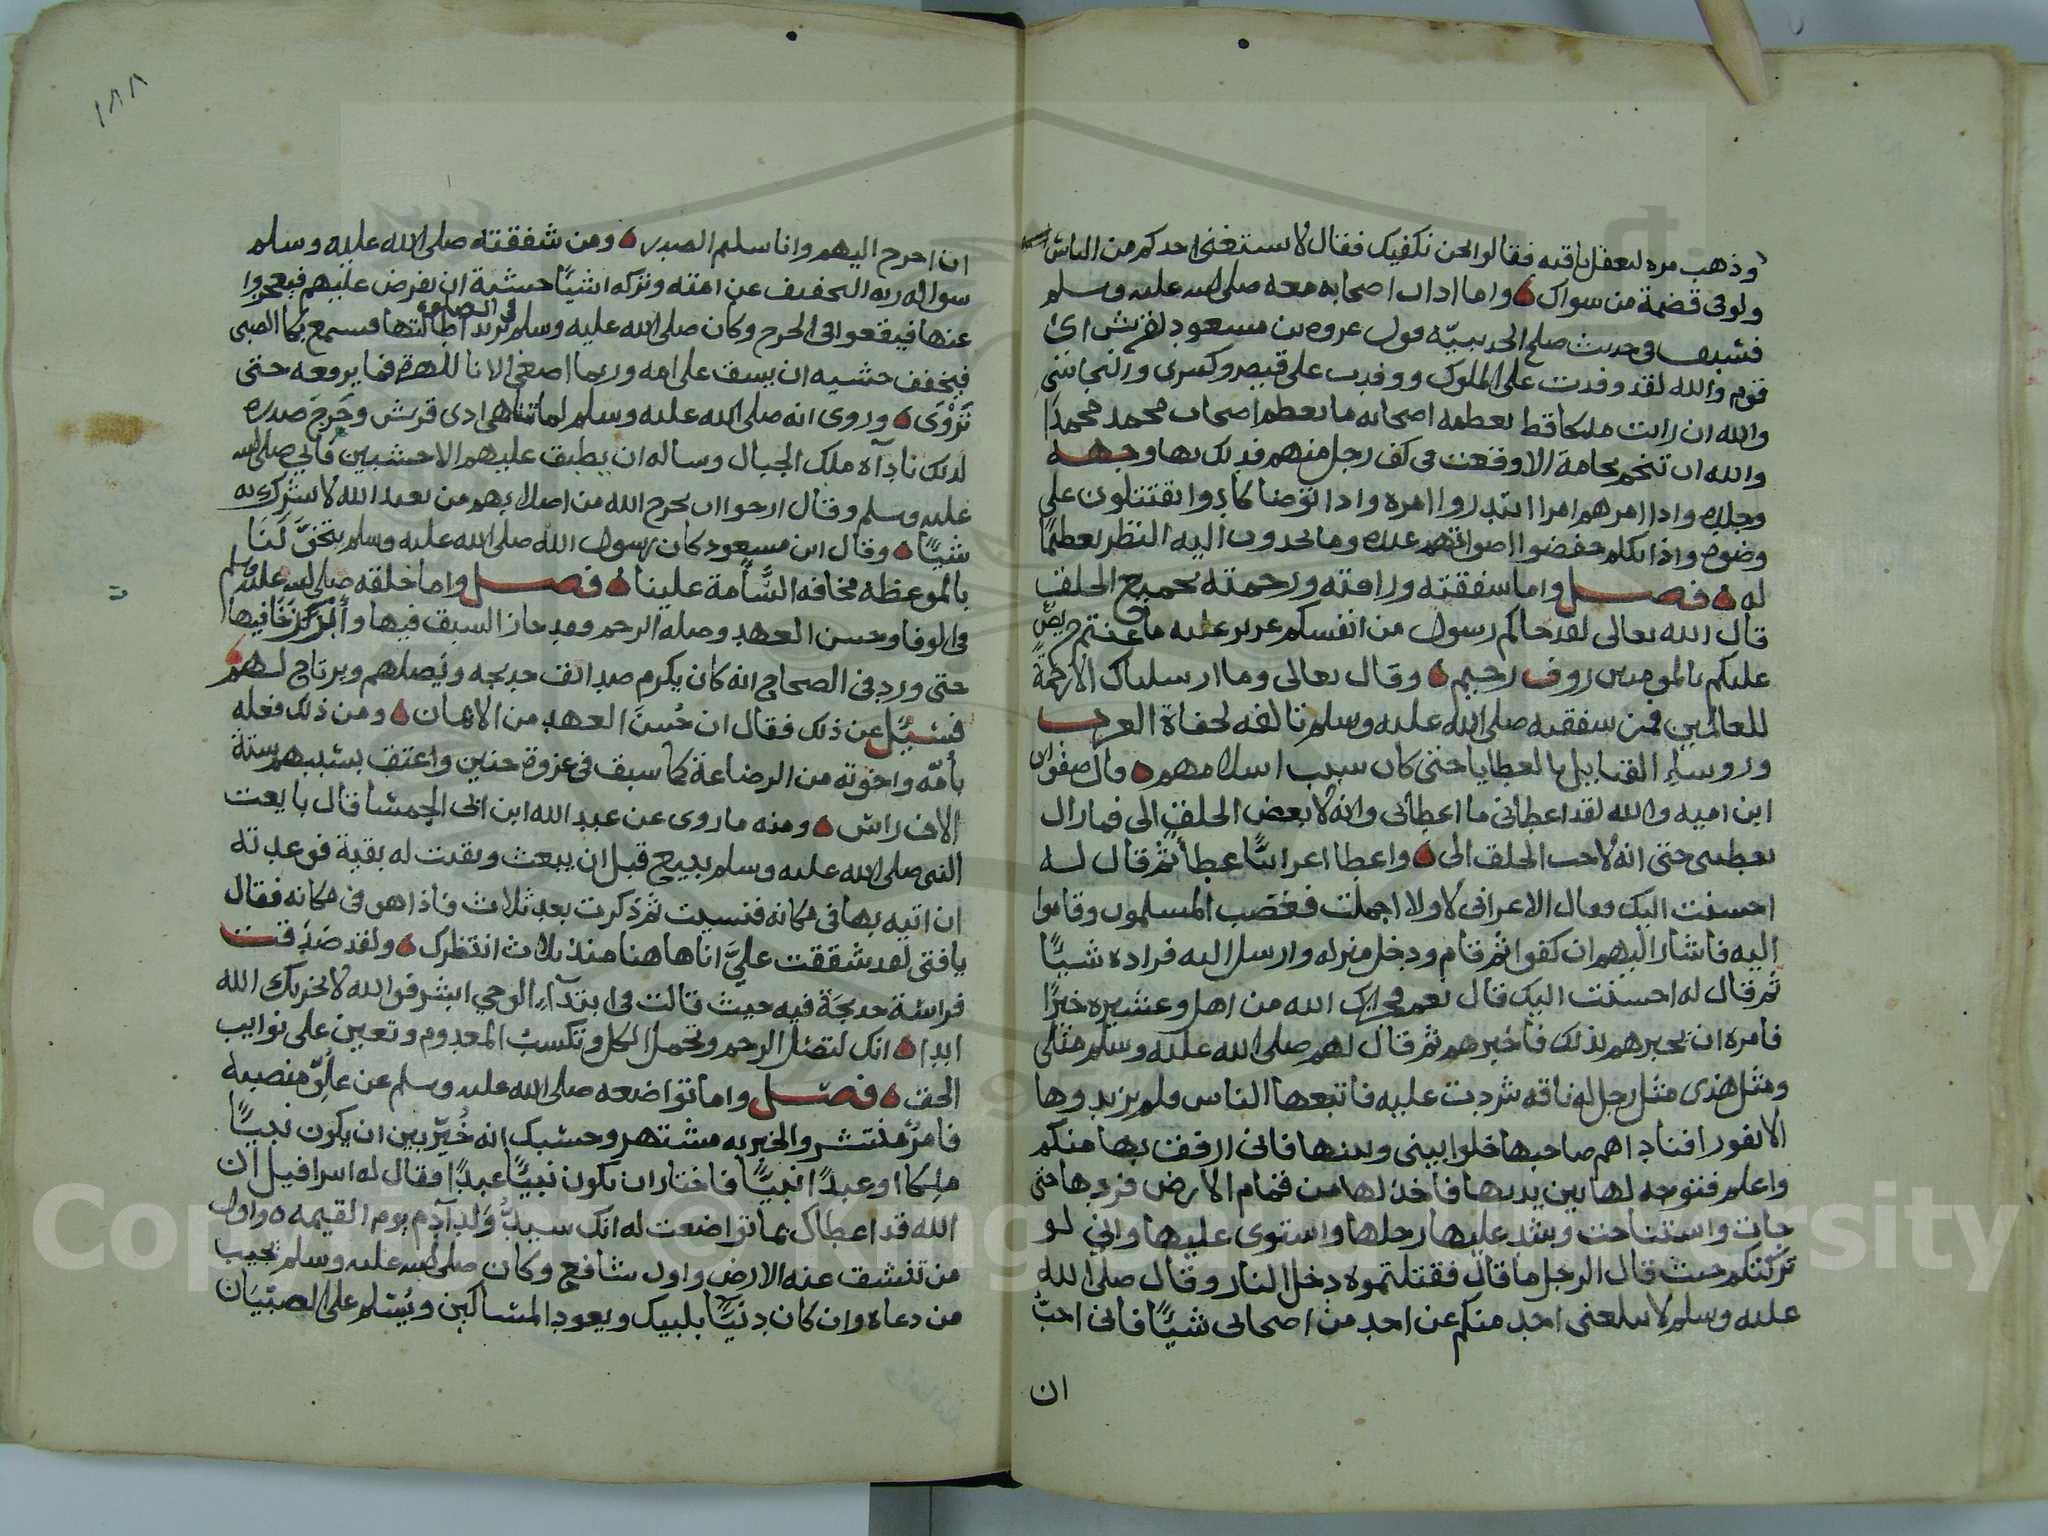 وذهب مره ليعقل ناقته فقالوا نحن نكفيك فقال لا يستغني احدكم من الناس
ولو في قضمة من سواك ۞ واما اداب اصحابه معه صلى الله عليه وسلم
فسبق في حديث صلح الحديبيّة قول عروه بن مسعود لقريش اي
قوم والله لقد وفدت على الملوك ووفدت على قيصر وكسرى والنجاشي
والله ان رايت ملكا قط يعظمه اصحابه ما يعظم اصحاب محمد محمدا
والله ان تنخم نخامة الا وقعت في كف رجل منهم فدلك بها وجهه
وجلده واذا امرهم امرا ابتدروا امره واذا توضا كادوا يقتتلون على
وضوءه واذا تكلم خفضوا اصواتهم عنده وما يحدون اليه النظر تعظيمًا
له ۞ فصل واما شفقته ورافته ورحمته لجميع الخلق
قال الله تعالى لقد جاكم رسول من انفسكم عزيز عليه ما عنتم حريصٌ
عليكم بالمومنين روف رحيم ۞ وقال تعالى وما ارسلناك الا رحمةً
للعالمين فمن شفقته صلى الله عليه وسلم تالفه لجفاة العرب
وروساء القبايل بالعطايا حتى كان سبب اسلامهم ۞ قال صفوان
ابن اميه والله لقد اعطاني ما اعطاني وانه لابغض الخلق الي فما زال
يعطيني حتى انه لاحب الخلق الي ۞ واعطا اعرابيًّا عطأً ثم قال له
احسنت اليك فقال الاعرابي لا ولا اجملت فغضب المسلمون وقاموا
اليه فاشار اليهم ان كفوا ثم قام ودخل منزله وارسل اليه فزاده شيًّا
ثم قال له احسنت اليك قال نعم فجزاك الله من اهل وعشيره خيرًا
فامره ان يخبرهم بذلك فاخبرهم ثم قال لهم صلى الله عليه وسلم مثلي
ومثل هذى مثل رجل له ناقه شردت عليه فاتبعها الناس فلم يزيدوها
الا نفورا فناداهم صاحبها خلوا بيني وبينها فاني ارفق بها منكم
واعلم فتوجه لها بين يديها فاخذ لها من قمام الارض فردها حتى
جات واستناخت وشد عليها رحلها واستوى عليها واني لو
تركتكم حيث قال الرجل ما قال فقتلتموه دخل النار وقال صلى الله
عليه وسلم لا يبلغني احد منكم عن احد من اصحابي شيًّا فاني احبُّ
ان
١٨٨
ان اخرج اليهم وانا سليم الصدر ۞ ومن شفقته صلى الله عليه وسلم
سواله ربه التخفيف عن امته وتركه اشيًا خشية ان يفرض عليهم فيعجزوا
عنها فيقعوا في الحرج وكان صلى الله عليه وسلم يريد في الصلوة اطالتها فيسمع بكا الصبي
فيخفف خشيه ان يشق على امه وربما اصغى الانا للهرة فما يرفعه حتى
تَرْوَى ۞ وروى انه صلى الله عليه وسلم لما تناهى اذى قريش وحَرِجَ صدره
لذلك ناداه ملك الجبال وساله ان يطبق عليهم الاخشبين فابى صلى الله
عليه وسلم وقال ارجوا ان يخرج الله من اصلابهم من يعبد الله لا يشرك به
شيًّا ۞ وقال ابن مسعود كان رسول الله صلى الله عليه وسلم يتخوّلَنَا
بالموعظة مخافه السَّأمة علينا ۞ فصل واما خلقه صلى الله عليه وسلم
في الوفا وحسن العهد وصله الرحم وقد حاز السبق فيها
حتى ورد في الصحاح انه كان يكرم صدائق خديجه ويصلهم ويرتاح لهم
فسُئِل عن ذلك فقال ان حُسْنَ العهد من الايمان ۞ ومن ذلك فعله
بأمّه واخوته من الرضاعة كما سبق في غزوة حنين واعتق بسببهم ستة
الاف راس ۞ ومنه ما روى عن عبد الله ابن ابي الحمسا قال بايعت
النبى صلى الله عليه وسلم ببيع قبل ان يبعث وبقيت له بقية فوعدته
ان اتيه بها في مكانه فنسيت ثم ذكرت بعد ثلاث فاذا هو في مكانه فقال
يا فتى لقد شققت عليَّ انا هاهنا منذ ثلاث انتظرك ۞ ولقد صدقت
فراسة خديجَة فيه حيث قالت في ابتدآء الوحي ابشر فوالله لا يخزيك الله
ابدا ۞ انك لتصل الرحم وتحمل الكل وتكسب المعدوم وتعين على نوايب
الحق ۞ فصل واما تواضعه صلى الله عليه وسلم عن علوِّ منصبه
فامرٌ منتشر والخبر به مشتهر وحسبك انه خُيّر بين ان يكون نبيًّا
ملكا او عبدًا نبيًّا فاختار ان يكون نبيًّا عبدًا فقال له اسرافيل ان
الله قد اعطاك بما تواضعت له انك سيدُ وَلَدِ آدم يوم القيمه واول
من تنشق عنه الارض واول شافع وكان صلى الله عليه وسلم يجيب
من دعاه وان كان دنيًّا بلبيك ويعود المساكين ويُسَلم على الصبيَان
Copyright © King Saud University